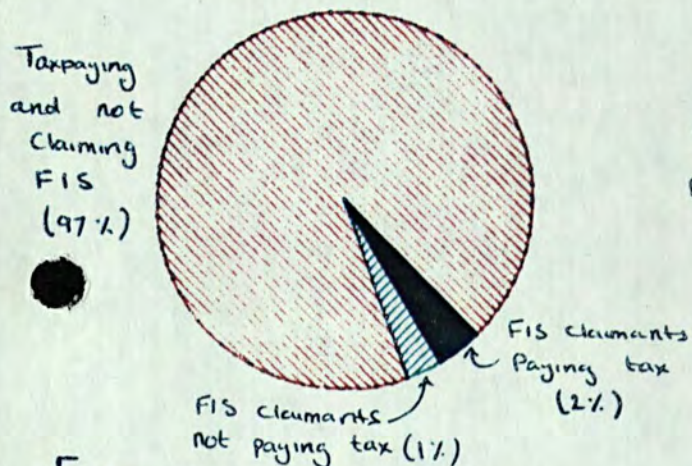 Taxpaying
and not
Claiming
FIS
(97%)
FIS Claimants
Paying tax
(2%)
FIS Claimants
not paying tax (1%)